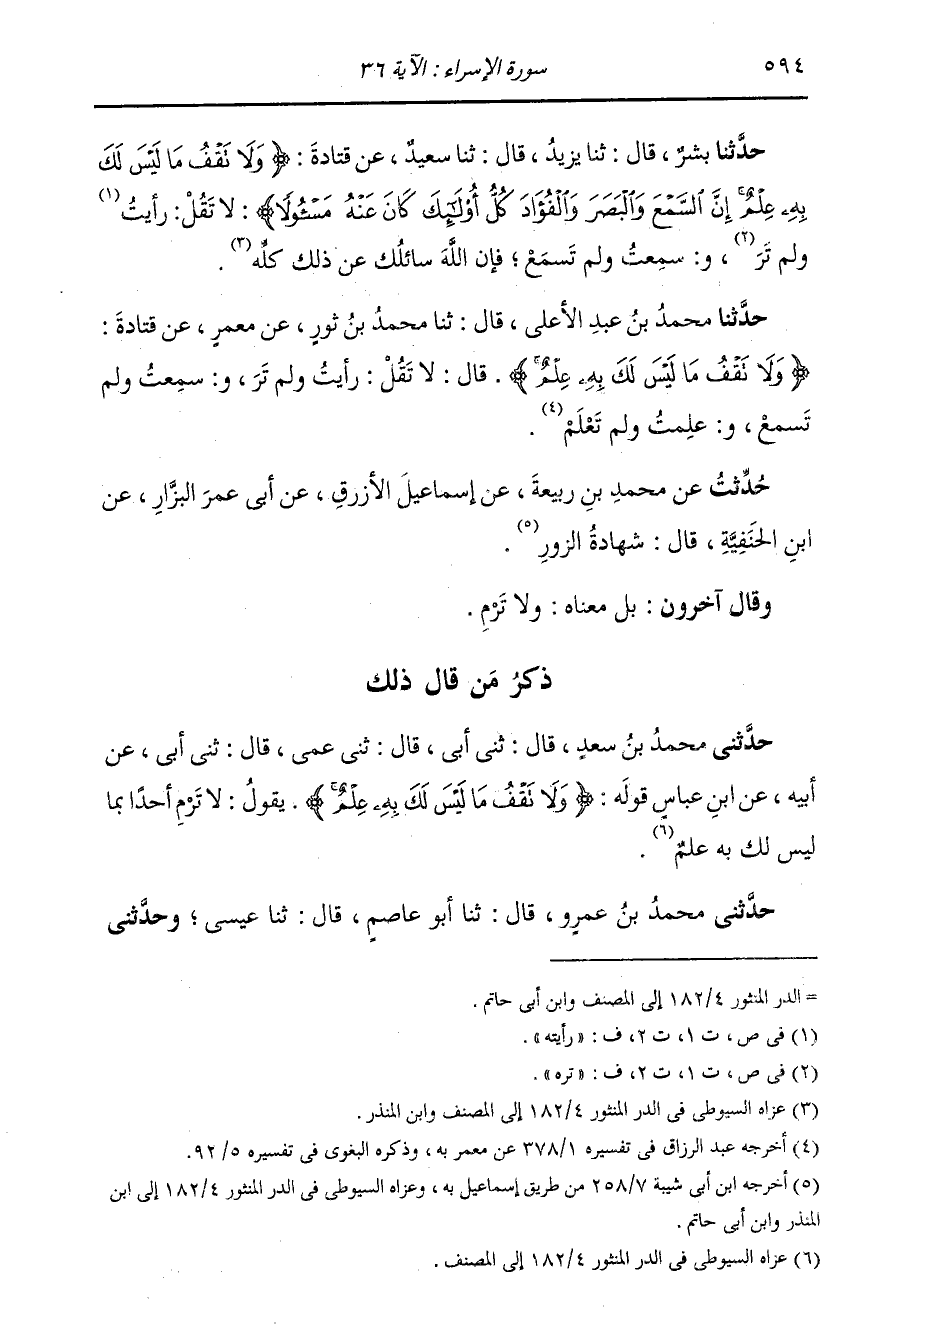 ٥٩٤ سورة الإسراء : الآية ٣٦
حدَّثنا بشرٌ ، قال : ثنا يزيدُ ، قال : ثنا سعيدٌ ، عن قتادةَ : ﴿ وَلَا نَقْفُ مَا لَيْسَ لَكَ
بِهِۦ عِلْمٌۚ إِنَّ ٱلسَّمْعَ وَٱلْبَصَرَ وَٱلْفُؤَادَ كُلُّ أُوْلَٰٓئِكَ كَانَ عَنْهُ مَسْـُٔولًا﴾ : لا تَقُلْ: رأيتُ(١)
ولم تَرَ(٢) ، و: سمِعتُ ولم تَسمَعْ ؛ فإن اللَّهَ سائلُك عن ذلك كلِّه(٣) .
حدَّثنا محمدُ بنُ عبدِ الأعلى ، قال : ثنا محمدُ بنُ ثورٍ ، عن معمرٍ ، عن قتادةَ :
﴿ وَلَا نَقْفُ مَا لَيْسَ لَكَ بِهِۦ عِلْمٌۚ ﴾ . قال : لا تَقُلْ : رأيتُ ولم تَرَ ، و: سمِعتُ ولم
تَسمعْ ، و: علِمتُ ولم تَعْلَمْ(٤) .
حُدِّثتُ عن محمدِ بنِ ربيعةَ ، عن إسماعيلَ الأزرقِ ، عن أبى عمرَ البزَّارِ ، عن
ابنِ الحَنَفِيَّةِ ، قال : شهادةُ الزورِ(٥) .
وقال آخرون : بل معناه : ولا تَرْمِ .
ذكرُ مَن قال ذلك
حدَّثنى محمدُ بنُ سعدٍ ، قال : ثنى أبى ، قال : ثنى عمى ، قال : ثنى أبى ، عن
أبيه ، عن ابنِ عباسٍ قولَه : ﴿ وَلَا نَقْفُ مَا لَيْسَ لَكَ بِهِۦ عِلْمٌۚ ﴾ . يقولُ : لا تَرْمِ أحدًا بما
ليس لك به علمٌ(٦) .
حدَّثنى محمدُ بنُ عمرٍو ، قال : ثنا أبو عاصمٍ ، قال : ثنا عيسى ؛ وحدَّثنى
= الدر المنثور ١٨٢/٤ إلى المصنف وابن أبى حاتم .
(١) فى ص ، ت ١، ت ٢، ف : «رأيته» .
(٢) فى ص ، ت ١، ت ٢، ف : «تره» .
(٣) عزاه السيوطى فى الدر المنثور ١٨٢/٤ إلى المصنف وابن المنذر .
(٤) أخرجه عبد الرزاق فى تفسيره ٣٧٨/١ عن معمر به ، وذكره البغوى فى تفسيره ٩٢/٥.
(٥) أخرجه ابن أبى شيبة ٢٥٨/٧ من طريق إسماعيل به ، وعزاه السيوطى فى الدر المنثور ١٨٢/٤ إلى ابن
المنذر وابن أبى حاتم .
(٦) عزاه السيوطى فى الدر المنثور ١٨٢/٤ إلى المصنف .